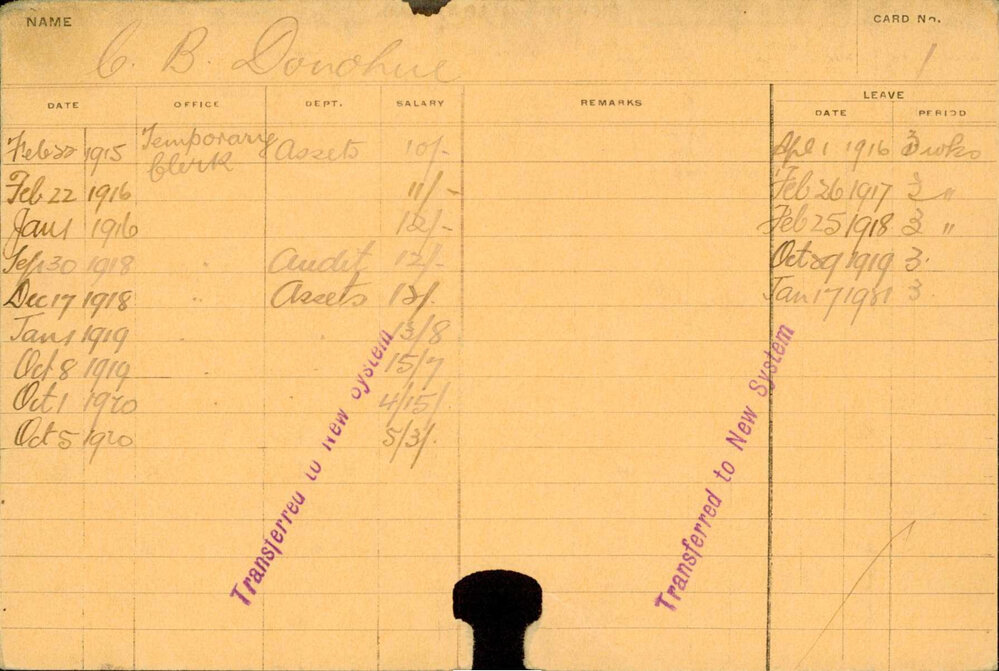 NAME CARD No.
C. B. Donohue 1
DATE OFFICE DEPT. SALARY REMARKS LEAVE
DATE PERIOD
Feb 22 1915 Temporary Clerk Assets 10/- Apl 1 1916 3 wks
Feb 22 1916 11/- Feb 26 1917 3 "
Jan 1 1916 12/- Feb 25 1918 3 "
Sep 30 1918 " Audit 12/- Oct 29 1919 3
Dec 17 1918 " Assets 12/. Jan 17 1921 3
Jan 1 1919 13/8
Oct 8 1919 15/7
Oct 1 1920 4/15/
Oct 5 1920 5/3/.
Transferred to New System
Transferred to New System